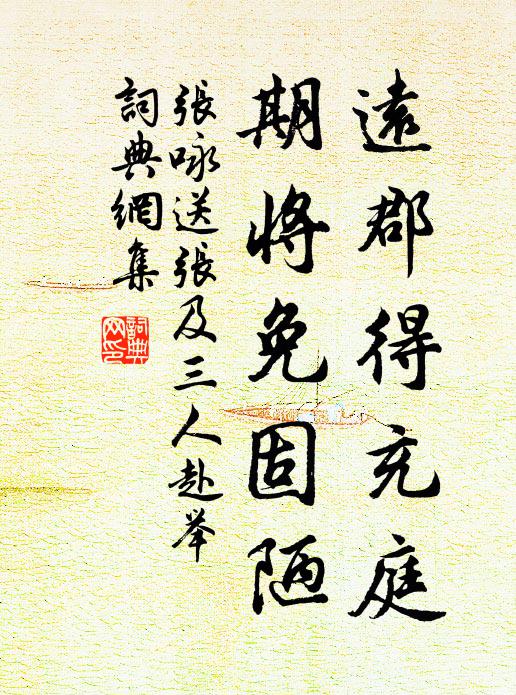 遠郡得充庭
期將免固陋
張咏送張及三人赴举
詞典網集
詞典網印